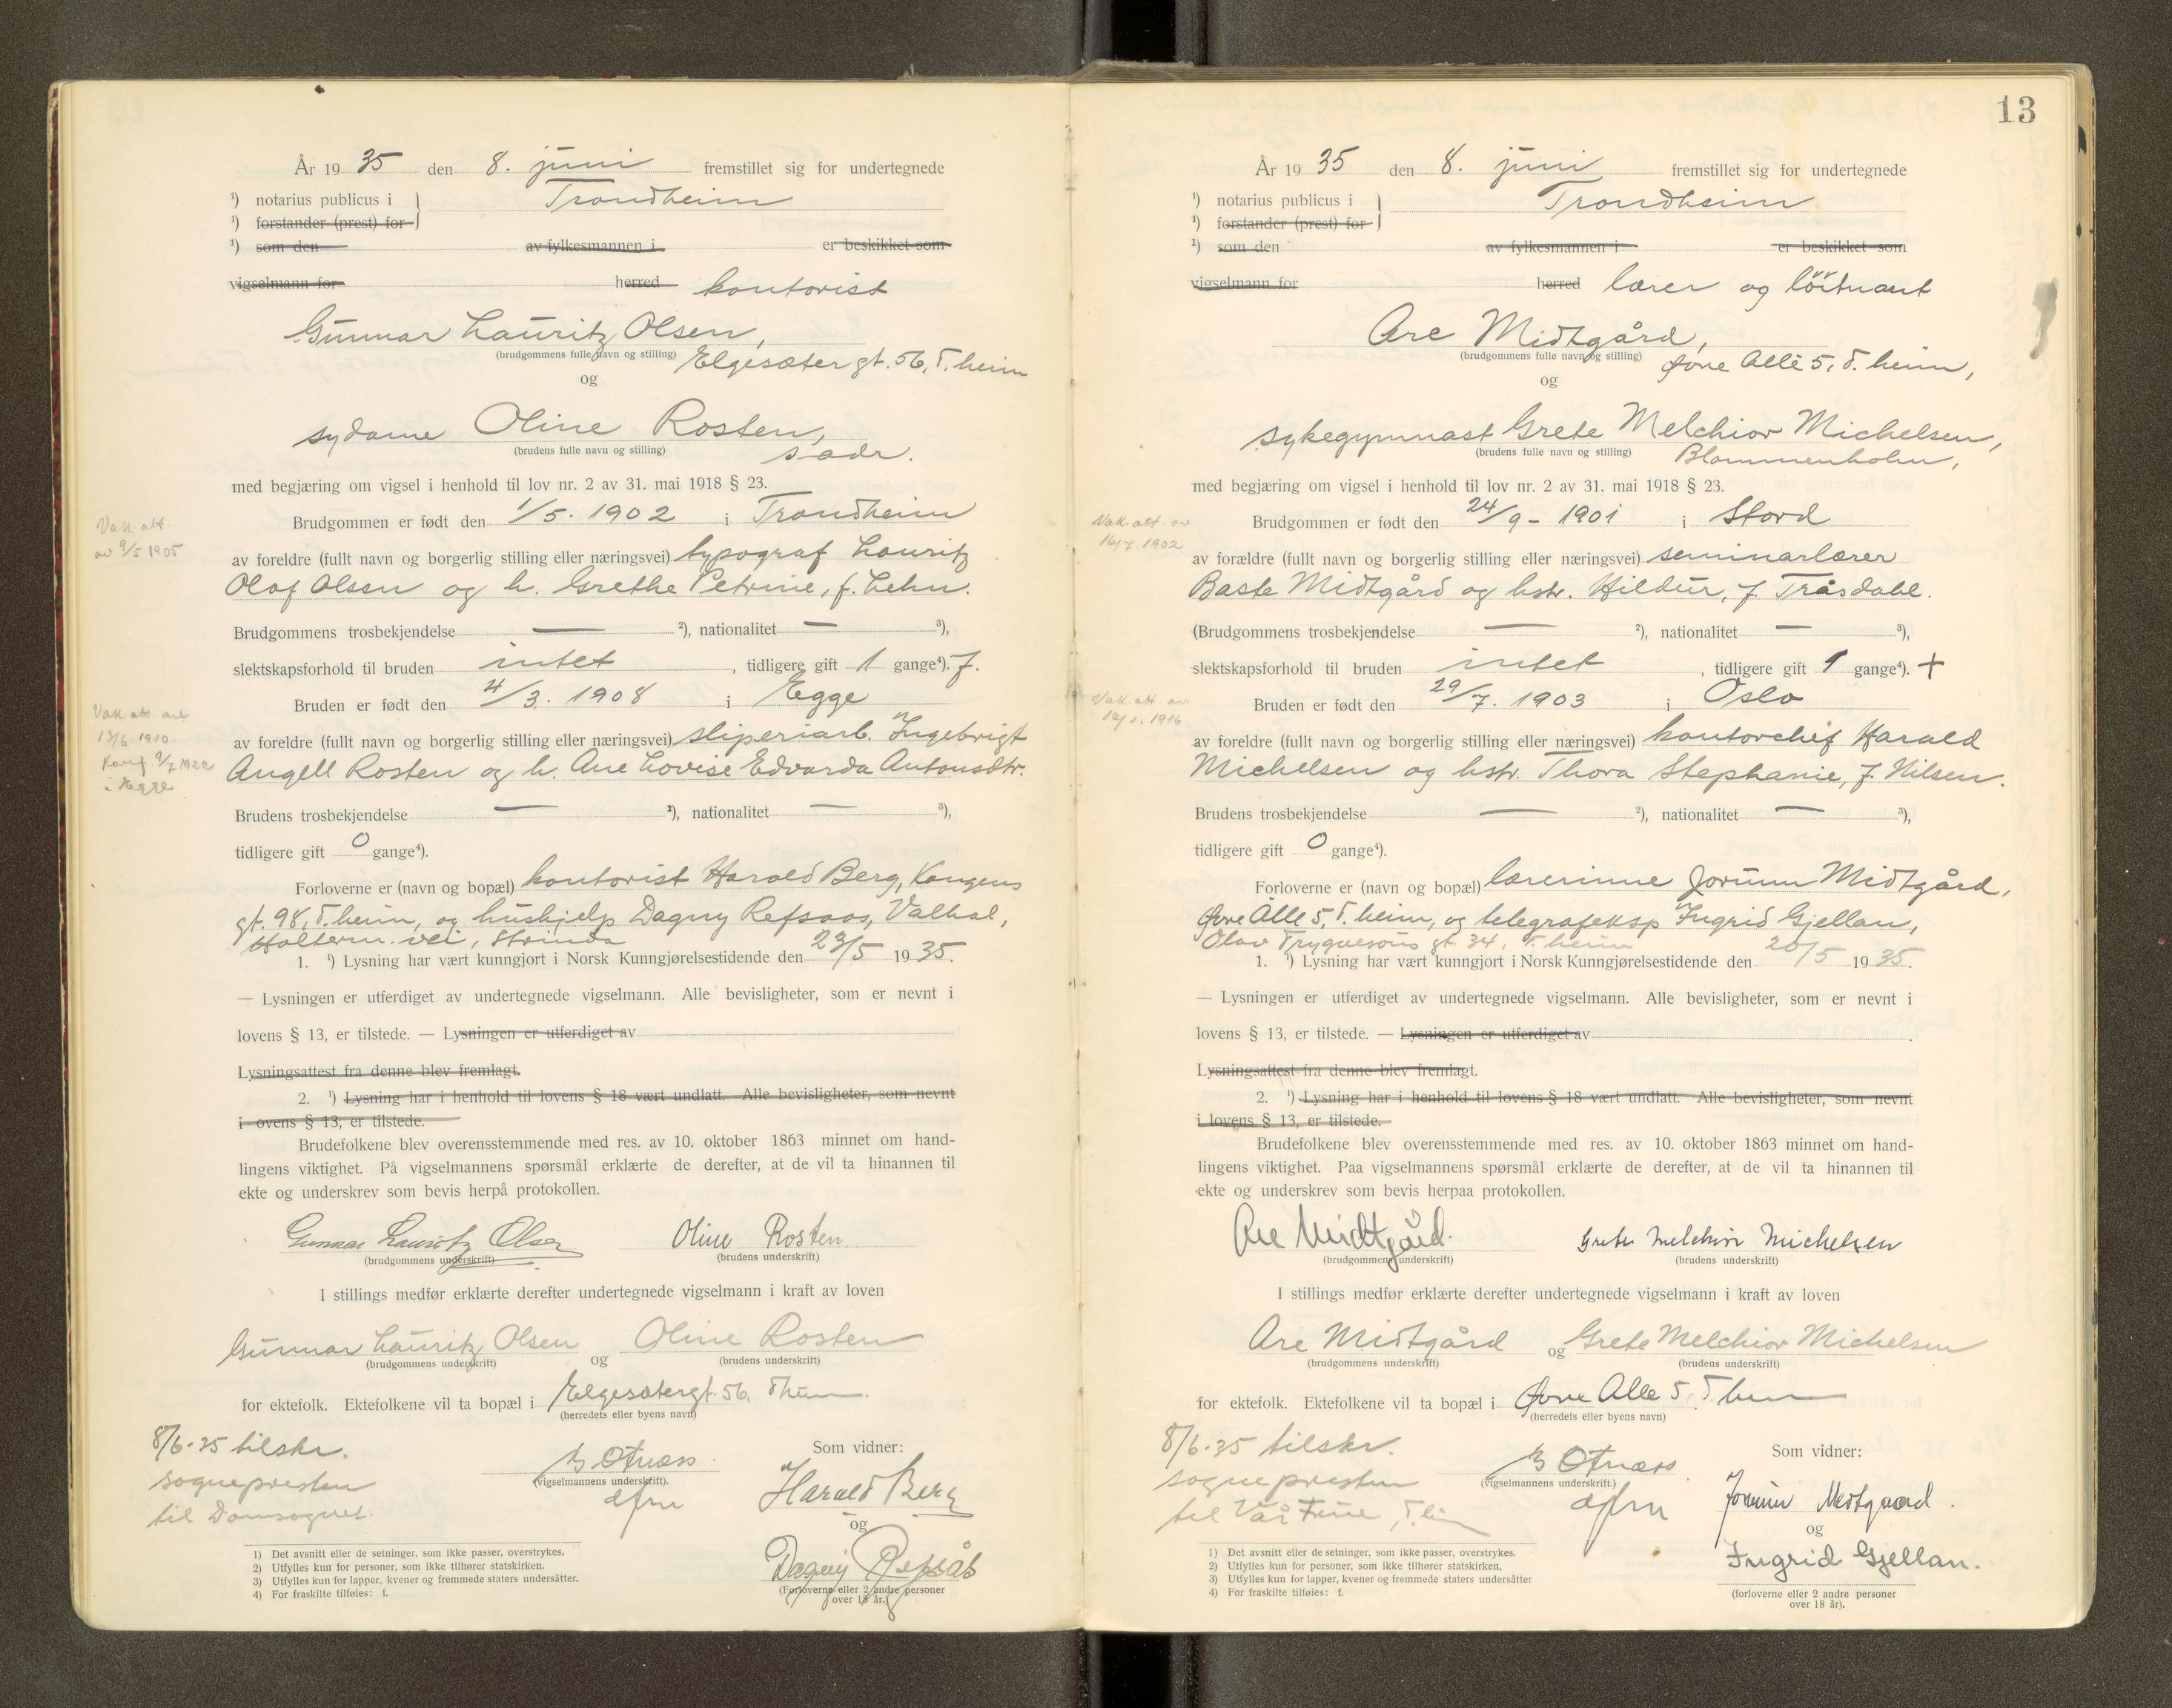 År 1935 den 8. juni fremstillet sig for undertegnede
¹) notarius publicus i Trondheim
¹) forstander (prest) for
¹) som den av fylkesmannen i er beskikket som
vigselmann for herred kontorist
Gunnar Lauritz Olsen,
(brudgommens fulle navn og stilling) Elgesæter gt. 56, T.heim
og
sydame Oline Rosten,
(brudens fulle navn og stilling) s. adr.
med begjæring om vigsel i henhold til lov nr. 2 av 31. mai 1918 § 23.
Vak. att.
av 9/5 1905
Brudgommen er født den 1/5. 1902 i Trondheim
av foreldre (fullt navn og borgerlig stilling eller næringsvei) typograf Lauritz
Olaf Olsen og h. Grethe Petrine, f. Lehn.
Brudgommens trosbekjendelse — ²), nationalitet — ³),
slektskapsforhold til bruden intet, tidligere gift 1 gange⁴). f.
Bruden er født den 4/3. 1908 i Egge
Vak att av
13/6 1910
Konf. 9/7 1922
i Egge
av foreldre (fullt navn og borgerlig stilling eller næringsvei) sliperiarb. Ingebrigt
Angell Rosten og h. Ane Lovise Edvarda Antonsdtr.
Brudens trosbekjendelse — ²), nationalitet — ³),
tidligere gift 0 gange⁴).
Forloverne er (navn og bopæl) kontorist Harald Berg, Kongens
gt. 98, T.heim, og hushjelp Dagny Refsaas, Valhal,
Halterm. vei, Strinda
1. ¹) Lysning har vært kunngjort i Norsk Kunngjørelsestidende den 23/5 1935.
— Lysningen er utferdiget av undertegnede vigselmann. Alle bevisligheter, som er nevnt i
lovens § 13, er tilstede. — Lysningen er utferdiget av
Lysningsattest fra denne blev fremlagt.
2. ¹) Lysning har i henhold til lovens § 18 vært undlatt. Alle bevisligheter, som nevnt
i ovens § 13, er tilstede.
Brudefolkene blev overensstemmende med res. av 10. oktober 1863 minnet om hand-
lingens viktighet. På vigselmannens spørsmål erklærte de derefter, at de vil ta hinannen til
ekte og underskrev som bevis herpå protokollen.
Gunnar Lauritz Olsen Oline Rosten
(brudgommens underskrift) (brudens underskrift)
I stillings medfør erklærte derefter undertegnede vigselmann i kraft av loven
Gunnar Lauritz Olsen og Oline Rosten
(brudgommens underskrift) (brudens underskrift)
for ektefolk. Ektefolkene vil ta bopæl i Elgesætergt. 56, Thm.
(herredets eller byens navn)
8/6-35 tilskr.
sognepresten
til Domsognet.
B Otnæss
(vigselmannens underskrift).
Som vidner:
Harald Berg
og
Dagny Refsås
(Forloverne eller 2 andre personer
over 18 år.)
1) Det avsnitt eller de setninger, som ikke passer, overstrykes.
2) Utfylles kun for personer, som ikke tilhører statskirken.
3) Utfylles kun for lapper, kvener og fremmede staters undersåtter.
4) For fraskilte tilføies: f.
13
År 1935 den 8. juni fremstillet sig for undertegnede
¹) notarius publicus i Trondheim
¹) forstander (prest) for
¹) som den av fylkesmannen i er beskikket som
vigselmann for herred lærer og löitnant
Are Midtgård,
(brudgommens fulle navn og stilling) Øvre Allé 5, T.heim,
og
sykegymnast Grete Melchior Michelsen,
(brudens fulle navn og stilling) Blommenholm,
med begjæring om vigsel i henhold til lov nr. 2 av 31. mai 1918 § 23.
Vak. att. av
16/7 1902
Brudgommen er født den 24/9 - 1901 i Stord
av forældre (fullt navn og borgerlig stilling eller næringsvei) seminarlærer
Baste Midtgård og hstr. Hildur, f. Tråsdahl.
(Brudgommens trosbekjendelse — ²), nationalitet — ³),
slektskapsforhold til bruden intet, tidligere gift 1 gange⁴). +
Vak att av
16/1. 1916
Bruden er født den 29/7. 1903 i Oslo
av foreldre (fullt navn og borgerlig stilling eller næringsvei) kontorchef Harald
Michelsen og hstr. Thora Stephanie, f. Nilsen.
Brudens trosbekjendelse — ²), nationalitet — ³),
tidligere gift 0 gange⁴).
Forloverne er (navn og bopæl) lærerinne Jorunn Midtgård,
Øvre Alle 5, T.heim, og telegrafeksp Ingrid Gjellan,
Olav Trygvesøns gt. 34, T.heim
1. ¹) Lysning har vært kunngjort i Norsk Kunngjørelsestidende den 20/5 1935.
— Lysningen er utferdiget av undertegnede vigselmann. Alle bevisligheter, som er nevnt i
lovens § 13, er tilstede. — Lysningen er utferdiget av
Lysningsattest fra denne blev fremlagt.
2. ¹) Lysning har i henhold til lovens § 18 vært undlatt. Alle bevisligheter, som nevnt
i lovens § 13, er tilstede.
Brudefolkene blev overensstemmende med res. av 10. oktober 1863 minnet om hand-
lingens viktighet. Paa vigselmannens spørsmål erklærte de derefter, at de vil ta hinannen til
ekte og underskrev som bevis herpaa protokollen.
Are Midtgård. Grete Melchior Michelsen
(brudgommens underskrift) (brudens underskrift)
I stillings medfør erklærte derefter undertegnede vigselmann i kraft av loven
Are Midtgård og Grete Melchior Michelsen
(brudgommens underskrift) (brudens underskrift)
for ektefolk. Ektefolkene vil ta bopæl i Øvre Alle 5, T.hm
(herredets eller byens navn)
8/6-35 tilskr.
sognepresten
til Vår Frue, T.hm
B Otnæss
(vigselmannens underskrift.)
Som vidner:
Jorunn Midtgaard.
og
Ingrid Gjellan.
(forloverne eller 2 andre personer
over 18 år).
1) Det avsnitt eller de setninger, som ikke passer, overstrykes.
2) Utfylles kun for personer, som ikke tilhører statskirken.
3) Utfylles kun for lapper, kvener og fremmede staters undersåtter
4) For fraskilte tilføies: f.